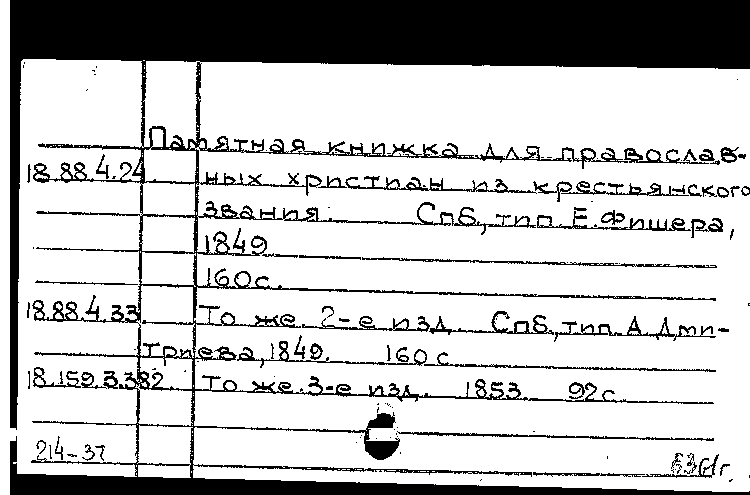 Памятная книжка для православ-
18.88.4.24. ных христиан из крестьянского
звания. Спб., тип. Е. Фишера,
1849
160 с.
18.88.4.33. То же. 2-е изд. Спб., тип. А. Дми-
триева, 1849. 160 с
18.159.3.382. То же. 3-е изд. 1853. 92 с.
214-37